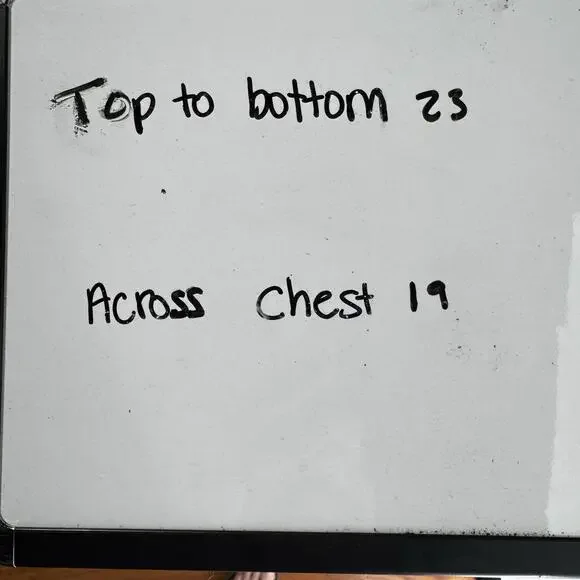 Top to bottom 23
Across Chest 19